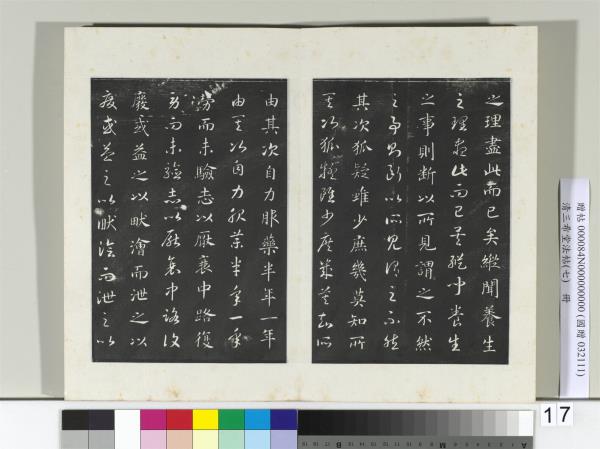 之理盡此而已矣縱聞養生
之理盡此而已矣縱聞養生
之事則斷以所見謂之不然
之事則斷以所見謂之不然
其次狐疑雖少庶幾莫知所
其次狐疑雖少庶幾莫知所
由其次自力服藥半年一年
由其次自力服藥半年一年
勞而未驗志以厭衰中路復
勞而未驗志以厭衰中路復
廢或益之以畎澮而泄之以
廢或益之以畎澮而泄之以
贈帖 000084N000000000 (國贈 032111)
清三希堂法帖(七) 冊
17